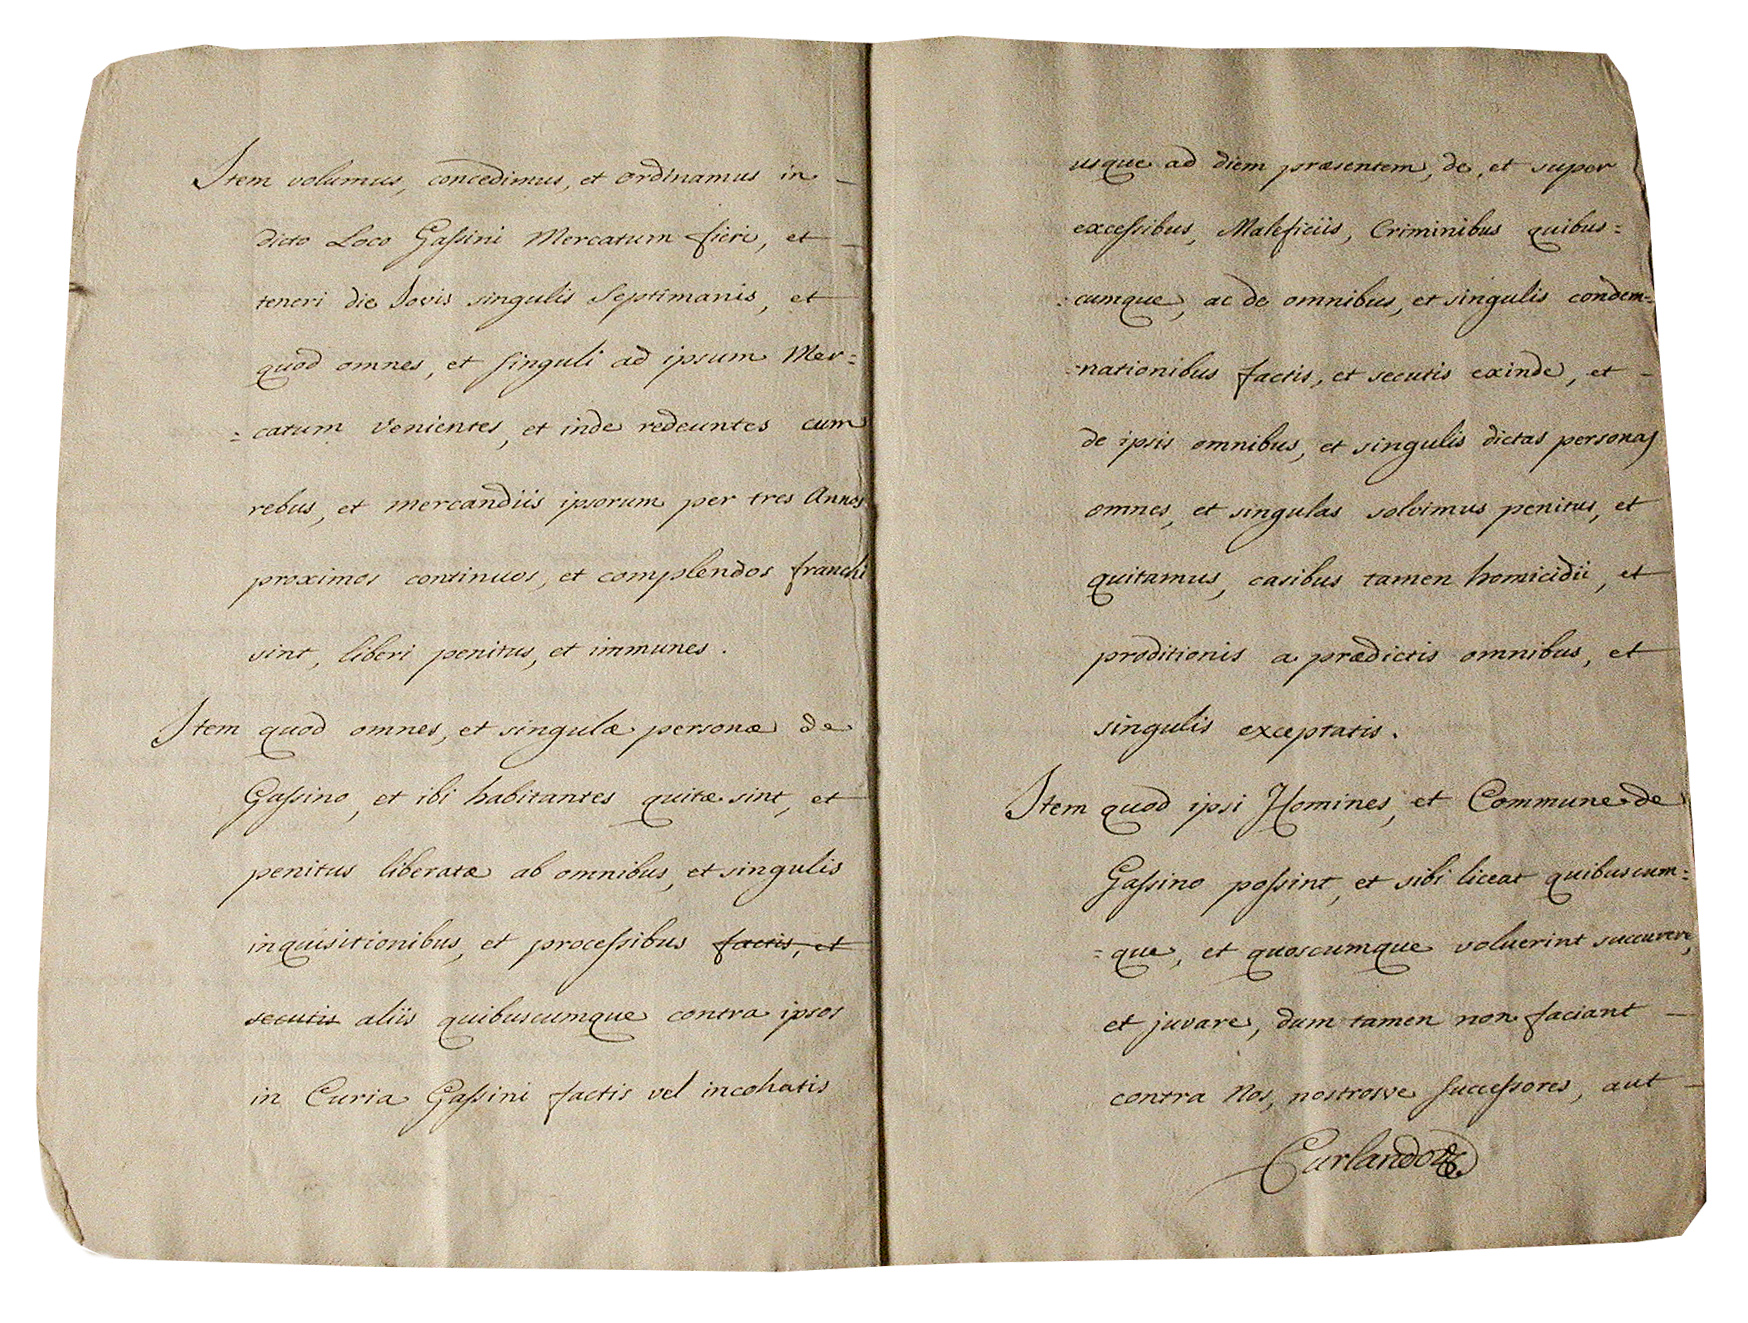 Item volumus, concedimus, et ordinamus in –
dicto Loco Gassini Mercatum fieri, et –
teneri die Jovis singulis Septimanis, et
quod omnes, et singuli ad ipsum Mer=
=catum venientes, et inde redeuntes cum
rebus, et mercandiis ipsorum per tres Annos
proximos continuos, et complendos franchi
sint, liberi penitus, et immunes.
Item quod omnes, et singulæ personæ de
Gassino, et ibi habitantes quitæ sint, et
penitus liberatæ ab omnibus, et singulis
inquisitionibus, et processibus factis, et
secutis aliis quibuscumque contra ipsos
in Curia Gassini factis vel incohatis
usque ad diem præsentem, de, et super
excessibus, Maleficiis, Criminibus quibus=
=cumque, ac de omnibus, et singulis condem=
=nationibus factis, et secutis exinde, et –
de ipsis omnibus, et singulis dictas personas
omnes, et singulas solvimus penitus, et
quitamus, casibus tamen homicidii, et
proditionis a prædictis omnibus, et
singulis exceptatis.
Item quod ipsi Homines, et Commune de
Gassino possint, et sibi liceat quibuscum=
=que, et quoscumque voluerint succurrere,
et juvare, dum tamen non faciant –
contra Nos, nostrosve Successores, aut –